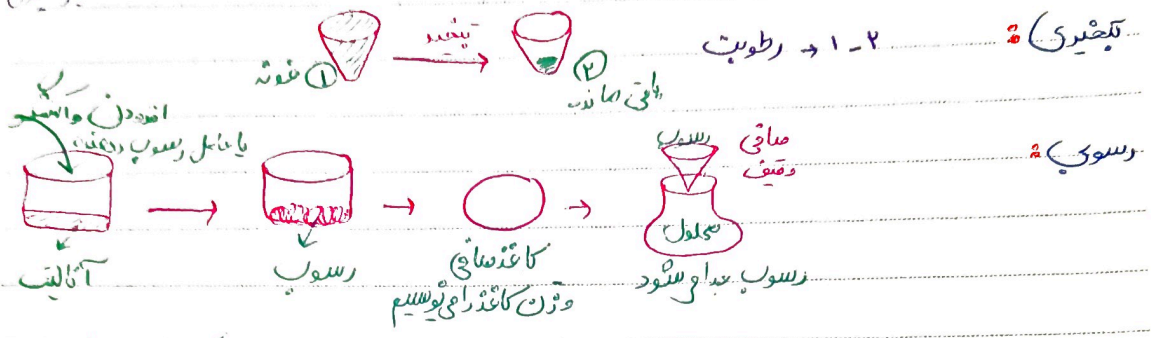 تبخیری: ۲ - ۱ → رطوبت
نمونه ①
تبخیر
②
باقی مانده
رسوبی:
افزودن واکنشگر
یا عامل رسوب دهنده
آنالیت
رسوب
کاغذ صافی
وزن کاغذ را می نویسیم
رسوب
صافی
و قیف
محلول
رسوب جدا می شود